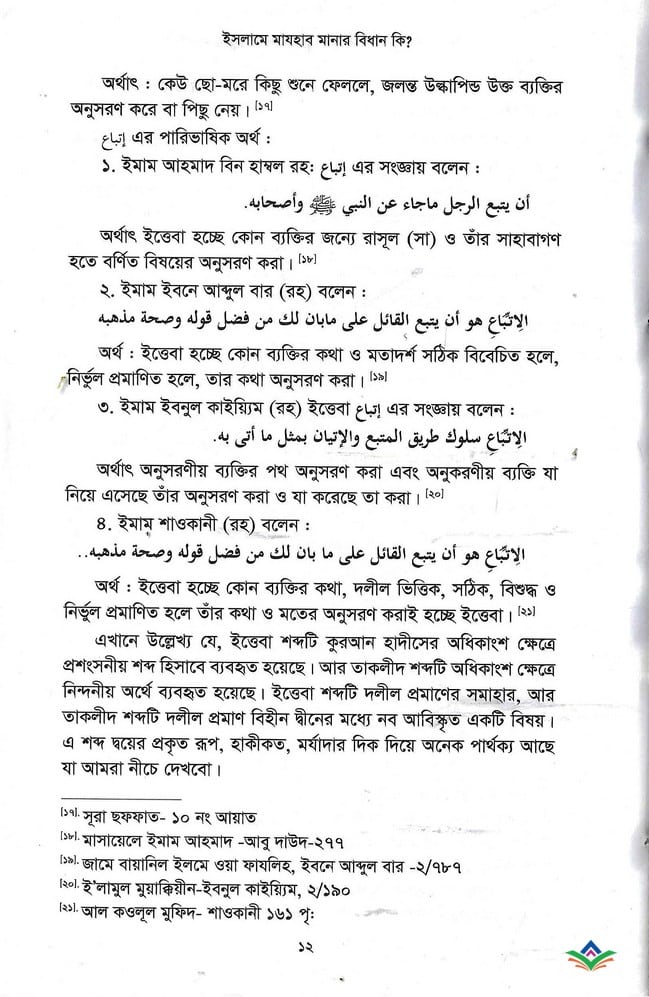 ইসলামে মাযহাব মানার বিধান কি?
অর্থাৎ : কেউ ছো-মরে কিছু শুনে ফেললে, জলন্ত উল্কাপিন্ড উক্ত ব্যক্তির
অনুসরণ করে বা পিছু নেয়। [১৭]
إتباع এর পারিভাষিক অর্থ :
১. ইমাম আহমাদ বিন হাম্বল রহঃ إتباع এর সংজ্ঞায় বলেন :
أن يتبع الرجل ماجاء عن النبي ﷺ وأصحابه.
অর্থাৎ ইত্তেবা হচ্ছে কোন ব্যক্তির জন্যে রাসূল (সা) ও তাঁর সাহাবাগণ
হতে বর্ণিত বিষয়ের অনুসরণ করা। [১৮]
২. ইমাম ইবনে আব্দুল বার (রহ) বলেন :
الإتِّبَاعِ هو أن يتبع القائل على مابان لك من فضل قوله وصحة مذهبه
অর্থ : ইত্তেবা হচ্ছে কোন ব্যক্তির কথা ও মতাদর্শ সঠিক বিবেচিত হলে,
নির্ভুল প্রমাণিত হলে, তার কথা অনুসরণ করা। [১৯]
৩. ইমাম ইবনুল কাইয়্যিম (রহ) ইত্তেবা إتباع এর সংজ্ঞায় বলেন :
الإتِّبَاعِ سلوك طريق المتبع والإتيان بمثل ما أتى به.
অর্থাৎ অনুসরণীয় ব্যক্তির পথ অনুসরণ করা এবং অনুকরণীয় ব্যক্তি যা
নিয়ে এসেছে তাঁর অনুসরণ করা ও যা করেছে তা করা। [২০]
৪. ইমাম শাওকানী (রহ) বলেন :
الإتِّبَاعِ هو أن يتبع القائل على ما بان لك من فضل قوله وصحة مذهبه..
অর্থ : ইত্তেবা হচ্ছে কোন ব্যক্তির কথা, দলীল ভিত্তিক, সঠিক, বিশুদ্ধ ও
নির্ভুল প্রমাণিত হলে তাঁর কথা ও মতের অনুসরণ করাই হচ্ছে ইত্তেবা। [২১]
এখানে উল্লেখ্য যে, ইত্তেবা শব্দটি কুরআন হাদীসের অধিকাংশ ক্ষেত্রে
প্রশংসনীয় শব্দ হিসাবে ব্যবহৃত হয়েছে। আর তাকলীদ শব্দটি অধিকাংশ ক্ষেত্রে
নিন্দনীয় অর্থে ব্যবহৃত হয়েছে। ইত্তেবা শব্দটি দলীল প্রমাণের সমাহার, আর
তাকলীদ শব্দটি দলীল প্রমাণ বিহীন দ্বীনের মধ্যে নব আবিস্কৃত একটি বিষয়।
এ শব্দ দ্বয়ের প্রকৃত রূপ, হাকীকত, মর্যাদার দিক দিয়ে অনেক পার্থক্য আছে
যা আমরা নীচে দেখবো।
[১৭]. সূরা ছফফাত- ১০ নং আয়াত
[১৮]. মাসায়েলে ইমাম আহমাদ -আবু দাউদ-২৭৭
[১৯]. জামে বায়ানিল ইলমে ওয়া ফাযলিহ, ইবনে আব্দুল বার -২/৭৮৭
[২০]. ই'লামুল মুয়াক্কিয়ীন-ইবনুল কাইয়্যিম, ২/১৯০
[২১]. আল কওলূল মুফিদ- শাওকানী ১৬১ পৃ:
১২